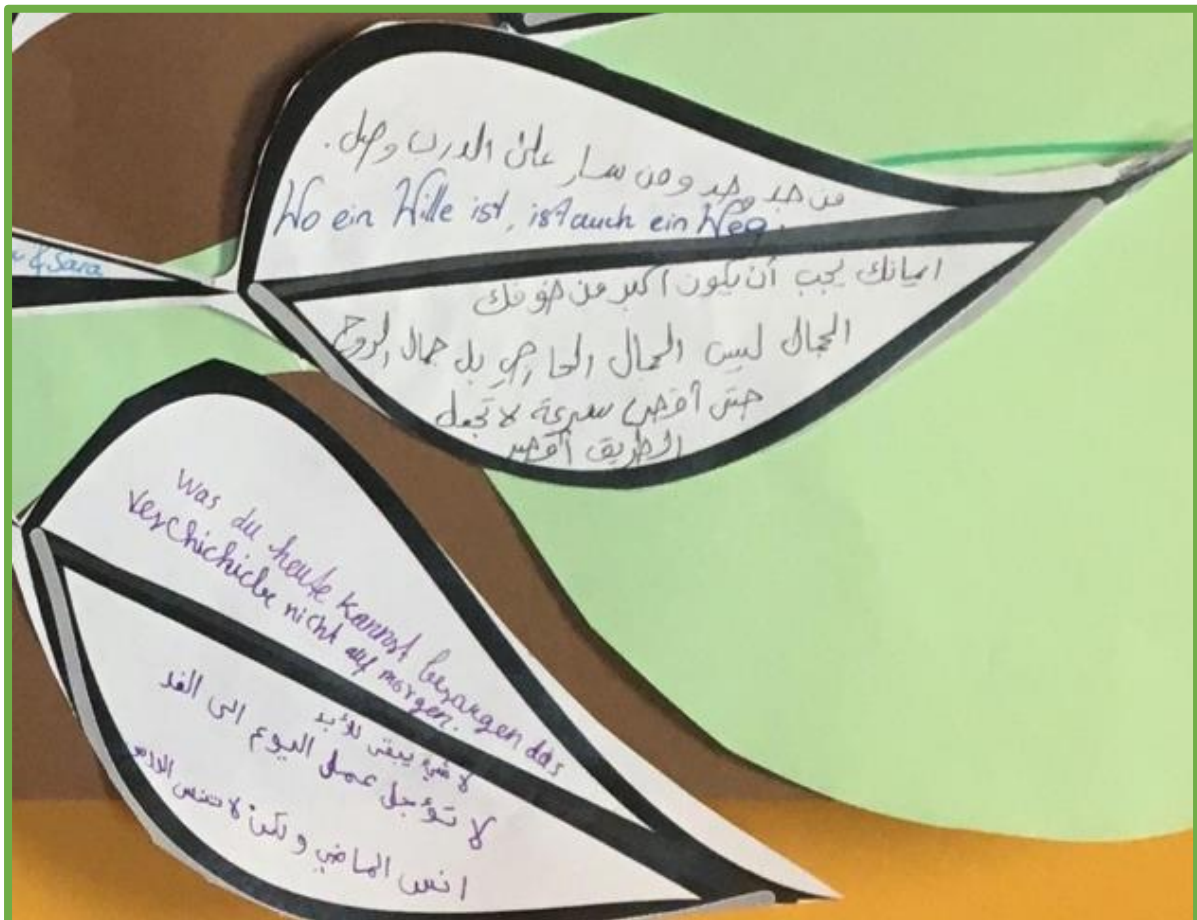 من جد وجد و من سار على الدرب وصل.
Wo ein Wille ist, ist auch ein Weg.
& Sara
ايمانك يجب أن يكون اكبر من خوفك
الجمال ليس الجمال الخارجي بل جمال الروح
حتى أقصى سرعة لا تجعل
الطريق أقصر
Was du heute kannst besorgen das
verschichicbe nicht auf morgen.
لا شيء يبقى للأبد
لا تؤجل عمل اليوم الى الغد
انس الماضي و لكن لا تنس